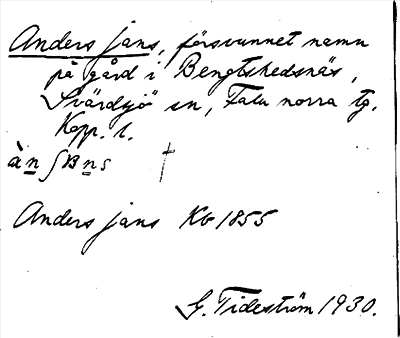 Anders jans, försvunnet namn
på gård i Bengtshedsnäs,
Svärdsjö sn, Falu norra tg.
Kopp. l.
àn ʃ Bns †
Anders jans Kb 1855
G. Tideström 1930.